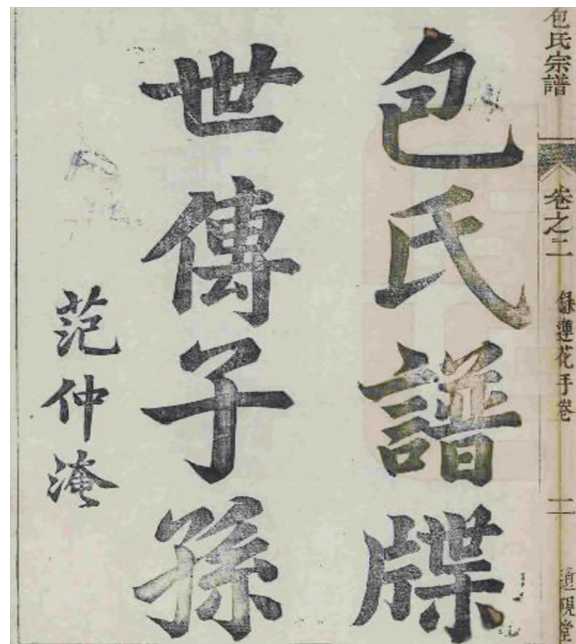 包氏宗譜
卷之二
錄蓮花手卷
二
硯堂
包氏譜牒
世傳子孫
范仲淹